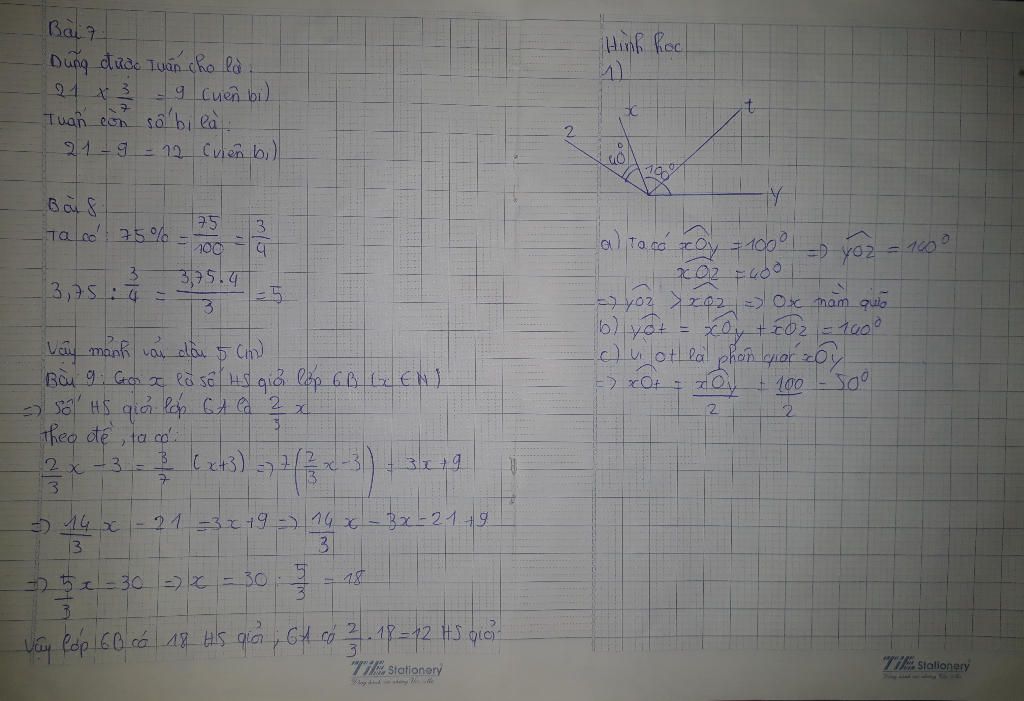 Bài 7:
Dũng được Tuấn cho là:
21 x 3/7 = 9 (viên bi)
Tuấn còn số bi là:
21 - 9 = 12 (viên bi)
Bài 8:
Ta có: 75% = 75/100 = 3/4
3,75 : 3/4 = 3,75.4/3 = 5
Vậy mảnh vải dài 5 (m)
Bài 9: Gọi x là số HS giỏi lớp 6B (x ∈ N)
=> Số HS giỏi lớp 6A là 2/3 x
Theo đề, ta có:
2/3 x - 3 = 3/7 (x+3) => 7(2/3 x - 3) = 3x+9
=> 14/3 x - 21 = 3x+9 => 14/3 x - 3x = 21+9
=> 5/3 x = 30 => x = 30 : 5/3 = 18
Vậy lớp 6B có 18 HS giỏi, 6A có 2/3 . 18 = 12 HS giỏi.
TiE Stationery
Hình học
1)
z x t
40° 100°
y
a) Ta có xOy = 100° => yOz = 140°
xOz = 40°
=> yOz > xOz => Ox nằm giữa
b) yOt = xOy + xOz = 140°
c) Vì Ot là phân giác xOy
=> xOt = xOy/2 = 100/2 = 50°
TiE Stationery